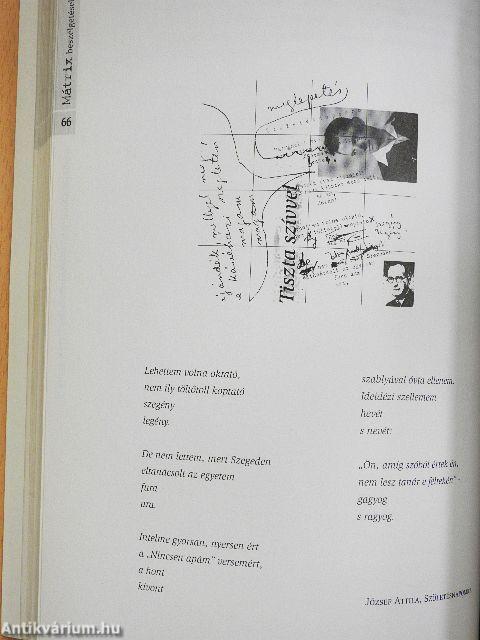 66 Mátrix beszélgetések
meglepetés
ajándék, mellyel meg
e kávéházi szegleten
magam
magam
Tiszta szívvel
Lehettem volna oktató,
nem ily töltőtoll koptató
szegény
legény.
De nem lettem, mert Szegeden
eltanácsolt az egyetem
fura
ura.
Intelme gyorsan, nyersen ért
a „Nincsen apám" versemért,
a hont
kivont
szablyával óvta ellenem.
Ideidézi szellemem
hevét
s nevét:
„Ön, amig szóból értek én,
nem lesz tanár e féltekén" -
gagyog
s ragyog.
JÓZSEF ATTILA, SZÜLETÉSNAPOMRA
Antikvárium.hu